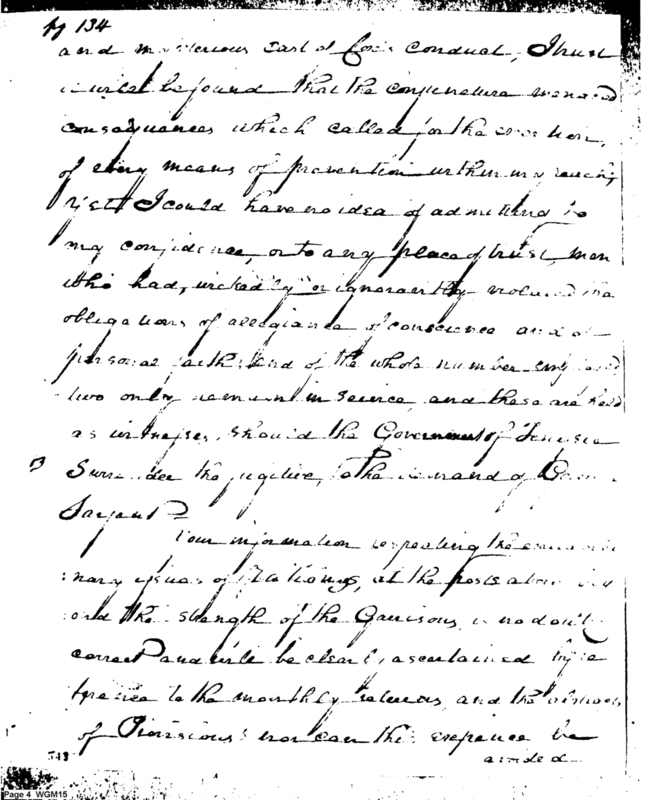 pg 134
and mysterious cast of Cox's conduct, I trust
it will be found that the conjuncture menaced
consequences which called for the exertion,
of every means of prevention within my reach,
yet I could have no idea of admitting to
my confidence, or to any place of trust, men
who had, wickedly or ignorantly violated the
obligations of allegiance of conscience and of
personal faith: and of the whole number
two only remain in service, and these are held
as witnesses, should the Government of
Surrender the fugitive, to the demand of
Sargent
Your information respecting the
nary issues of Rations, at the posts
and the strength of the Garrisons, is no doubt
correct and will be clearly ascertained by
to the monthly returns, and the abstracts
of Provisions: nor can the expence be
avoided
Page 4 WGM15